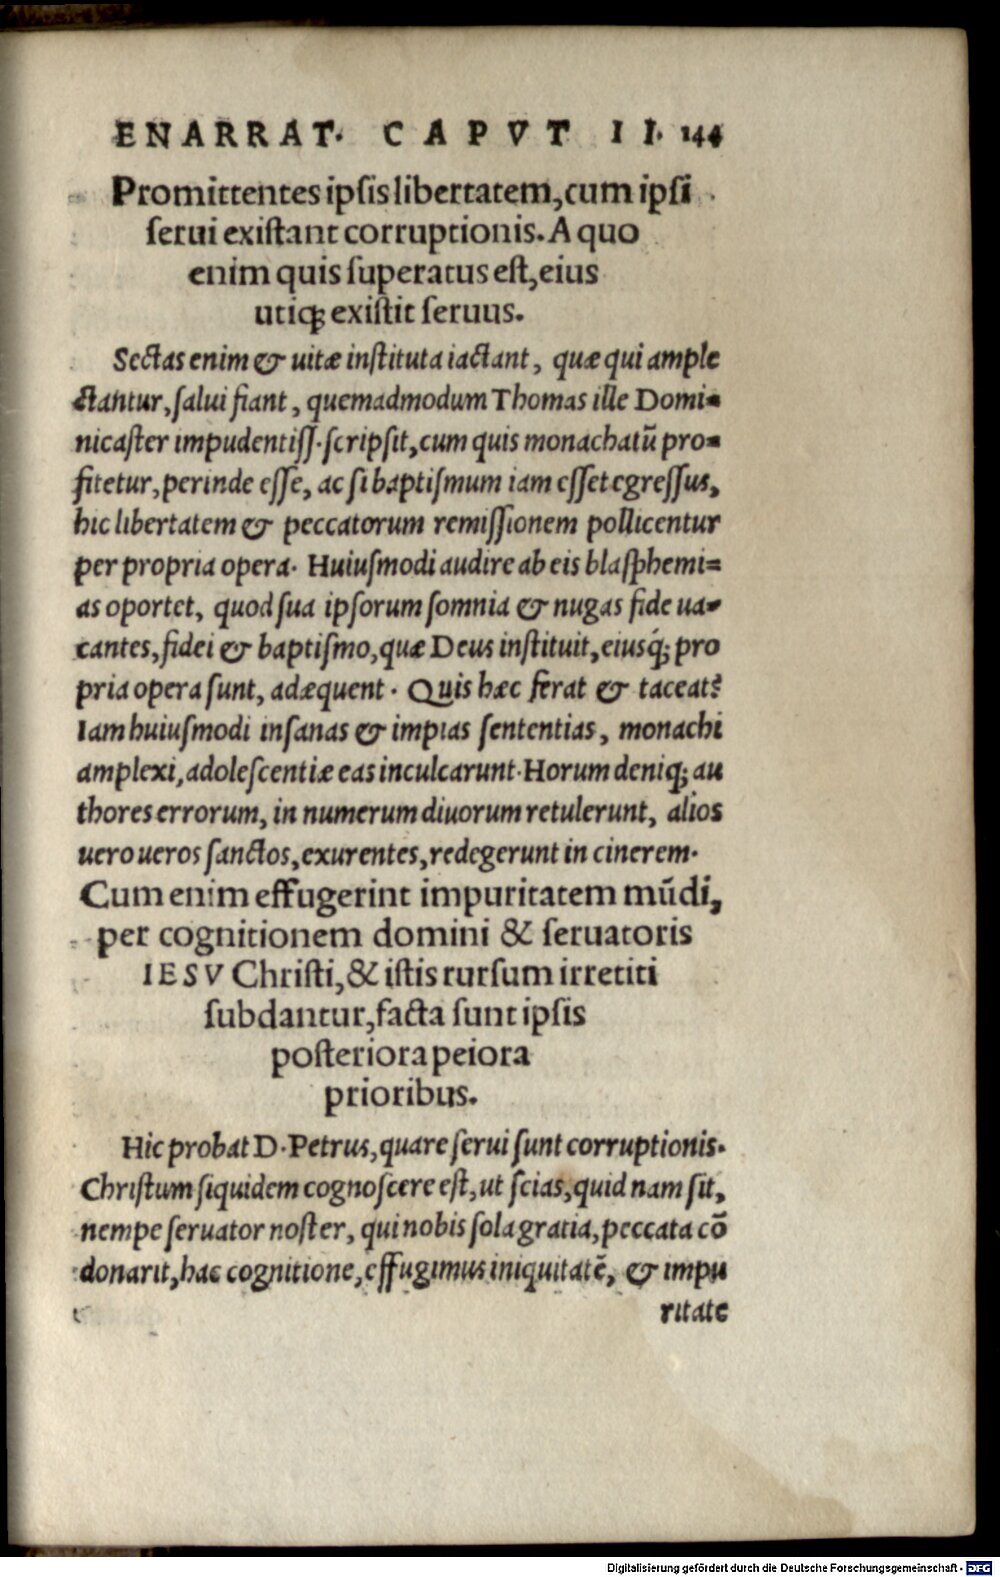 ENARRAT. CAPVT II. 144
Promittentes ipſis libertatem, cum ipſi
ſerui exiſtant corruptionis. A quo
enim quis ſuperatus eſt, eius
utiq; exiſtit ſeruus.
Sectas enim & uitæ inſtituta iactant, quæ qui ample
ctantur, ſalui fiant, quemadmodum Thomas ille Domi-
nicaſter impudentiſſ. ſcripſit, cum quis monachatū pro-
fitetur, perinde eſſe, ac ſi baptiſmum iam eſſet egreſſus,
hic libertatem & peccatorum remiſſionem pollicentur
per propria opera. Huiuſmodi audire ab eis blaſphemi=
as oportet, quod ſua ipſorum ſomnia & nugas fide ua-
cantes, fidei & baptiſmo, quæ Deus inſtituit, eiusq́; pro
pria opera ſunt, adæquent. Quis hæc ferat & taceat?
Iam huiuſmodi inſanas & impias ſententias, monachi
amplexi, adoleſcentiæ eas inculcarunt. Horum deniq; au
thores errorum, in numerum diuorum retulerunt, alios
uero ueros ſanctos, exurentes, redegerunt in cinerem.
Cum enim effugerint impuritatem mūdi,
per cognitionem domini & ſeruatoris
IESV Chriſti, & iſtis rurſum irretiti
ſubdantur, facta ſunt ipſis
poſteriora peiora
prioribus.
Hic probat D. Petrus, quare ſerui ſunt corruptionis.
Chriſtum ſiquidem cognoſcere eſt, ut ſcias, quid nam ſit,
nempe ſeruator noſter, qui nobis ſola gratia, peccata cō
donarit, hac cognitione, effugimus iniquitatē, & impu
ritate
Digitalisierung gefördert durch die Deutsche Forschungsgemeinschaft - DFG